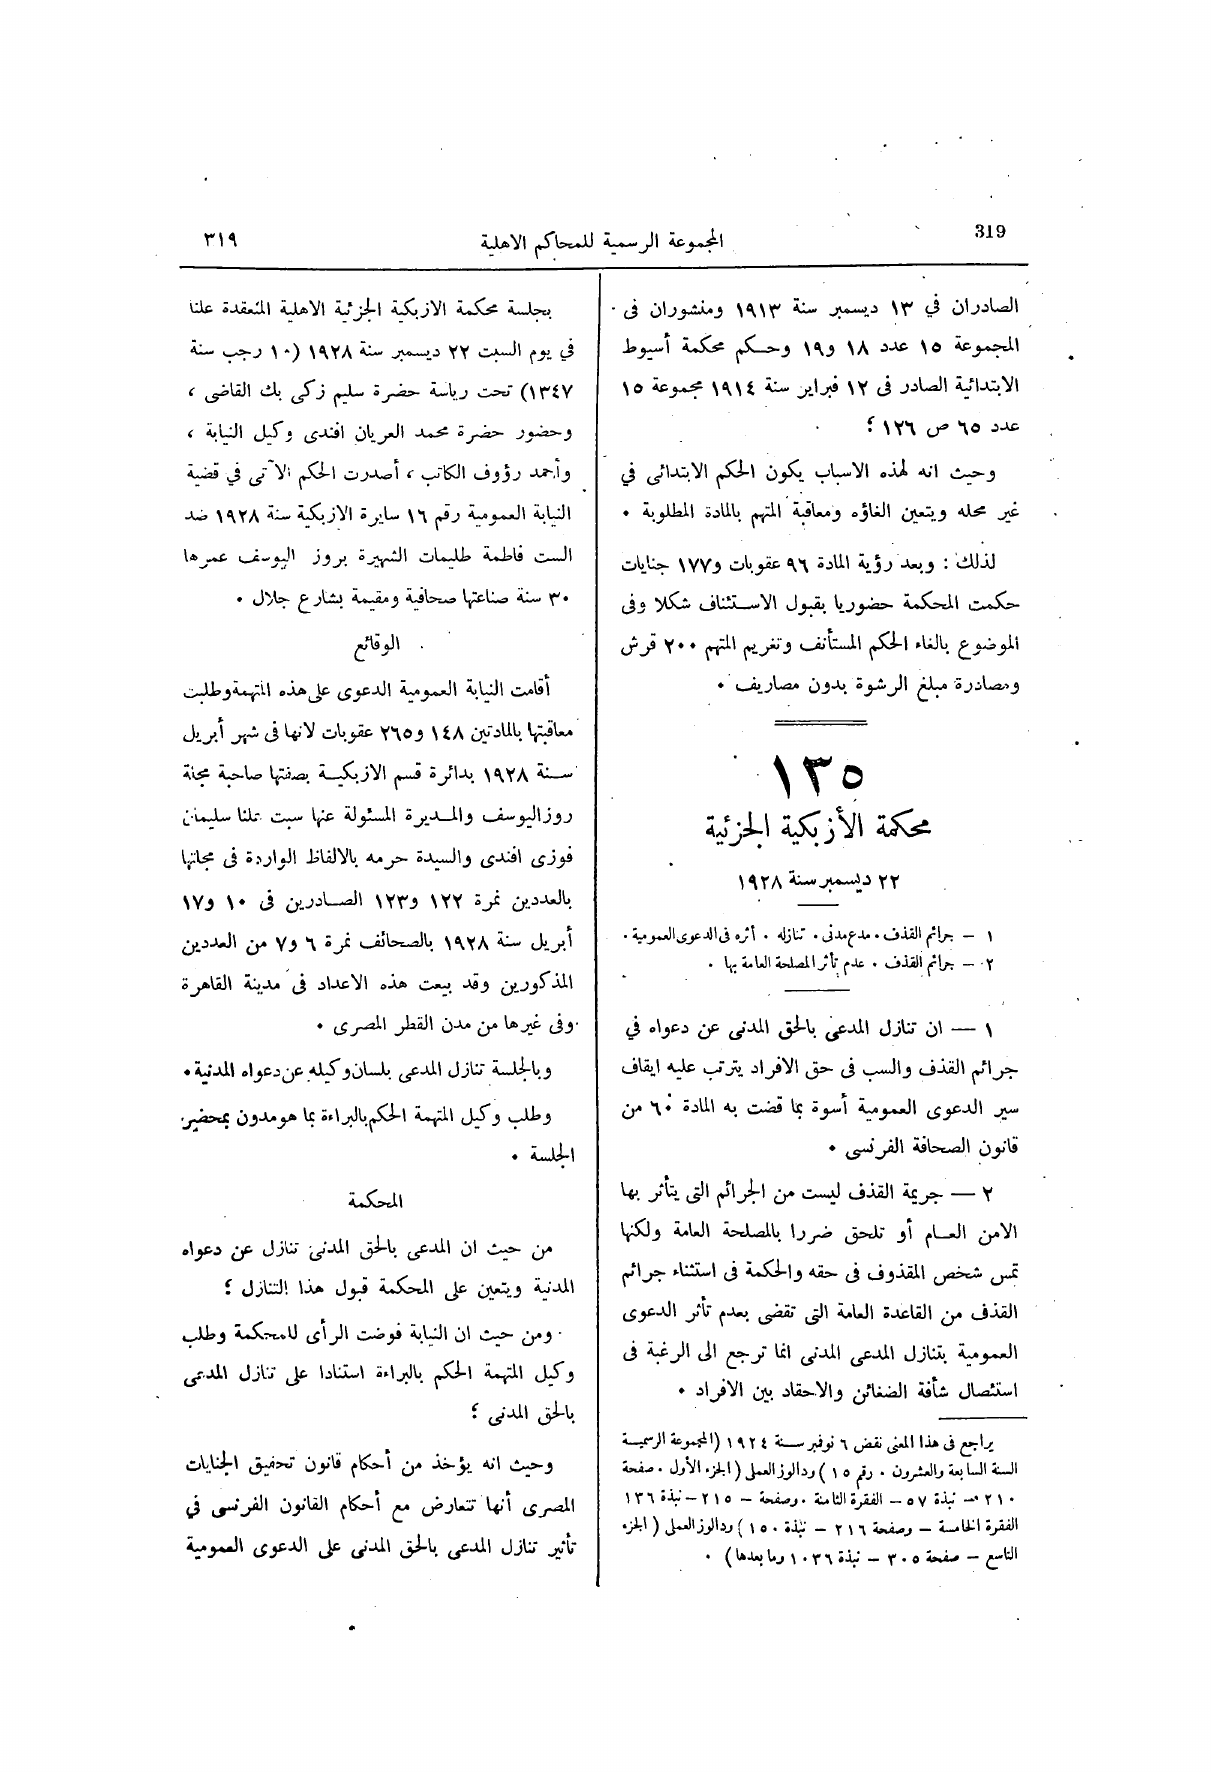 319
المجموعة الرسمية للمحاكم الاهلية
٣١٩
الصادران في ١٣ ديسمبر سنة ١٩١٣ ومنشوران فى
المجموعة ١٥ عدد ١٨ و١٩ وحكم محكمة أسيوط
الابتدائية الصادر فى ١٢ فبراير سنة ١٩١٤ مجموعة ١٥
عدد ٦٥ ص ١٢٦ ؛
وحيث انه لهذه الاسباب يكون الحكم الابتدائى في
غير محله ويتعين الغاؤه ومعاقبة المتهم بالمادة المطلوبة .
لذلك : وبعد رؤية المادة ٩٦ عقوبات و١٧٧ جنايات
حكمت المحكمة حضوريا بقبول الاستئناف شكلا وفى
الموضوع بالغاء الحكم المستأنف وتغريم المتهم ٢٠٠ قرش
ومصادرة مبلغ الرشوة بدون مصاريف .
١٣٥
محكمة الأزبكية الجزئية
٢٢ ديسمبر سنة ١٩٢٨
١ — جرائم القذف . مدع مدنى . تنازله . أثره فى الدعوى العمومية .
٢ — جرائم القذف . عدم تأثر المصلحة العامة بها .
١ — ان تنازل المدعى بالحق المدنى عن دعواه في
جرائم القذف والسب فى حق الافراد يترتب عليه ايقاف
سير الدعوى العمومية أسوة بما قضت به المادة ٦٠ من
قانون الصحافة الفرنسى .
٢ — جريمة القذف ليست من الجرائم التى يتأثر بها
الامن العام أو تلحق ضررا بالمصلحة العامة ولكنها
تمس شخص المقذوف فى حقه والحكمة فى استثناء جرائم
القذف من القاعدة العامة التى تقضى بعدم تأثر الدعوى
العمومية بتنازل المدعى المدنى انما ترجع الى الرغبة فى
استئصال شأفة الضغائن والاحقاد بين الافراد .
يراجع فى هذا المعنى نقض ٦ نوفبر سنة ١٩٢٤ (المجموعة الرسمية
السنة السابعة والعشرون . رقم ١٥ ) ودالوز العملى ( الجزء الأول . صفحة
٢١٠ — نبذة ٥٧ — الفقرة الثامنة . وصفحة — ٢١٥ — نبذة ١٣٦
الفقرة الخامسة — وصفحة ٢١٦ — نبذة ١٥٠ ) ودالوز العملى ( الجزء
التاسع — صفحة ٣٠٥ — نبذة ١٠٣٦ وما بعدها ) .
بجلسة محكمة الازبكية الجزئية الاهلية المنعقدة علنا
في يوم السبت ٢٢ ديسمبر سنة ١٩٢٨ (١٠ رجب سنة
١٣٤٧) تحت رياسة حضرة سليم زكى بك القاضى ،
وحضور حضرة محمد العريان افندى وكيل النيابة ،
وأحمد رؤوف الكاتب ، أصدرت الحكم الآتى في قضية
النيابة العمومية رقم ١٦ سايرة الازبكية سنة ١٩٢٨ ضد
الست فاطمة طليمات الشهيرة بروز اليوسف عمرها
٣٠ سنة صناعتها صحافية ومقيمة بشارع جلال .
الوقائع
أقامت النيابة العمومية الدعوى على هذه المتهمة وطلبت
معاقبتها بالمادتين ١٤٨ و٢٦٥ عقوبات لانها فى شهر أبريل
سنة ١٩٢٨ بدائرة قسم الازبكية بصفتها صاحبة مجلة
روز اليوسف والمديرة المسئولة عنها سبت علنا سليمان
فوزى افندى والسيدة حرمه بالالفاظ الواردة فى مجلتها
بالعددين نمرة ١٢٢ و١٢٣ الصادرين فى ١٠ و١٧
أبريل سنة ١٩٢٨ بالصحائف نمرة ٦ و٧ من العددين
المذكورين وقد بيعت هذه الاعداد فى مدينة القاهرة
وفى غيرها من مدن القطر المصرى .
وبالجلسة تنازل المدعى بلسان وكيله عن دعواه المدنية .
وطلب وكيل المتهمة الحكم بالبراءة بما هو مدون بمحضر
الجلسة .
المحكمة
من حيث ان المدعى بالحق المدنى تنازل عن دعواه
المدنية ويتعين على المحكمة قبول هذا التنازل ؛
ومن حيث ان النيابة فوضت الرأى للمحكمة وطلب
وكيل المتهمة الحكم بالبراءة استنادا على تنازل المدعى
بالحق المدنى ؛
وحيث انه يؤخذ من أحكام قانون تحقيق الجنايات
المصرى أنها تتعارض مع أحكام القانون الفرنسى في
تأثير تنازل المدعى بالحق المدنى على الدعوى العمومية